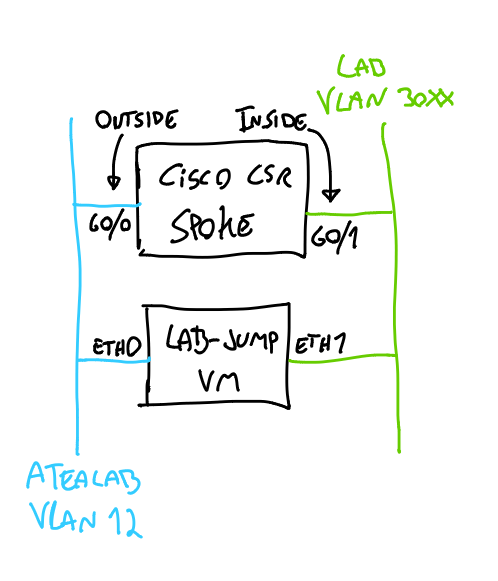 LAB
VLAN 30XX
OUTSIDE
INSIDE
CISCO CSR
SPOKE
G0/0
G0/1
ETH0
LAB-JUMP
VM
ETH1
ATEALAB
VLAN 12